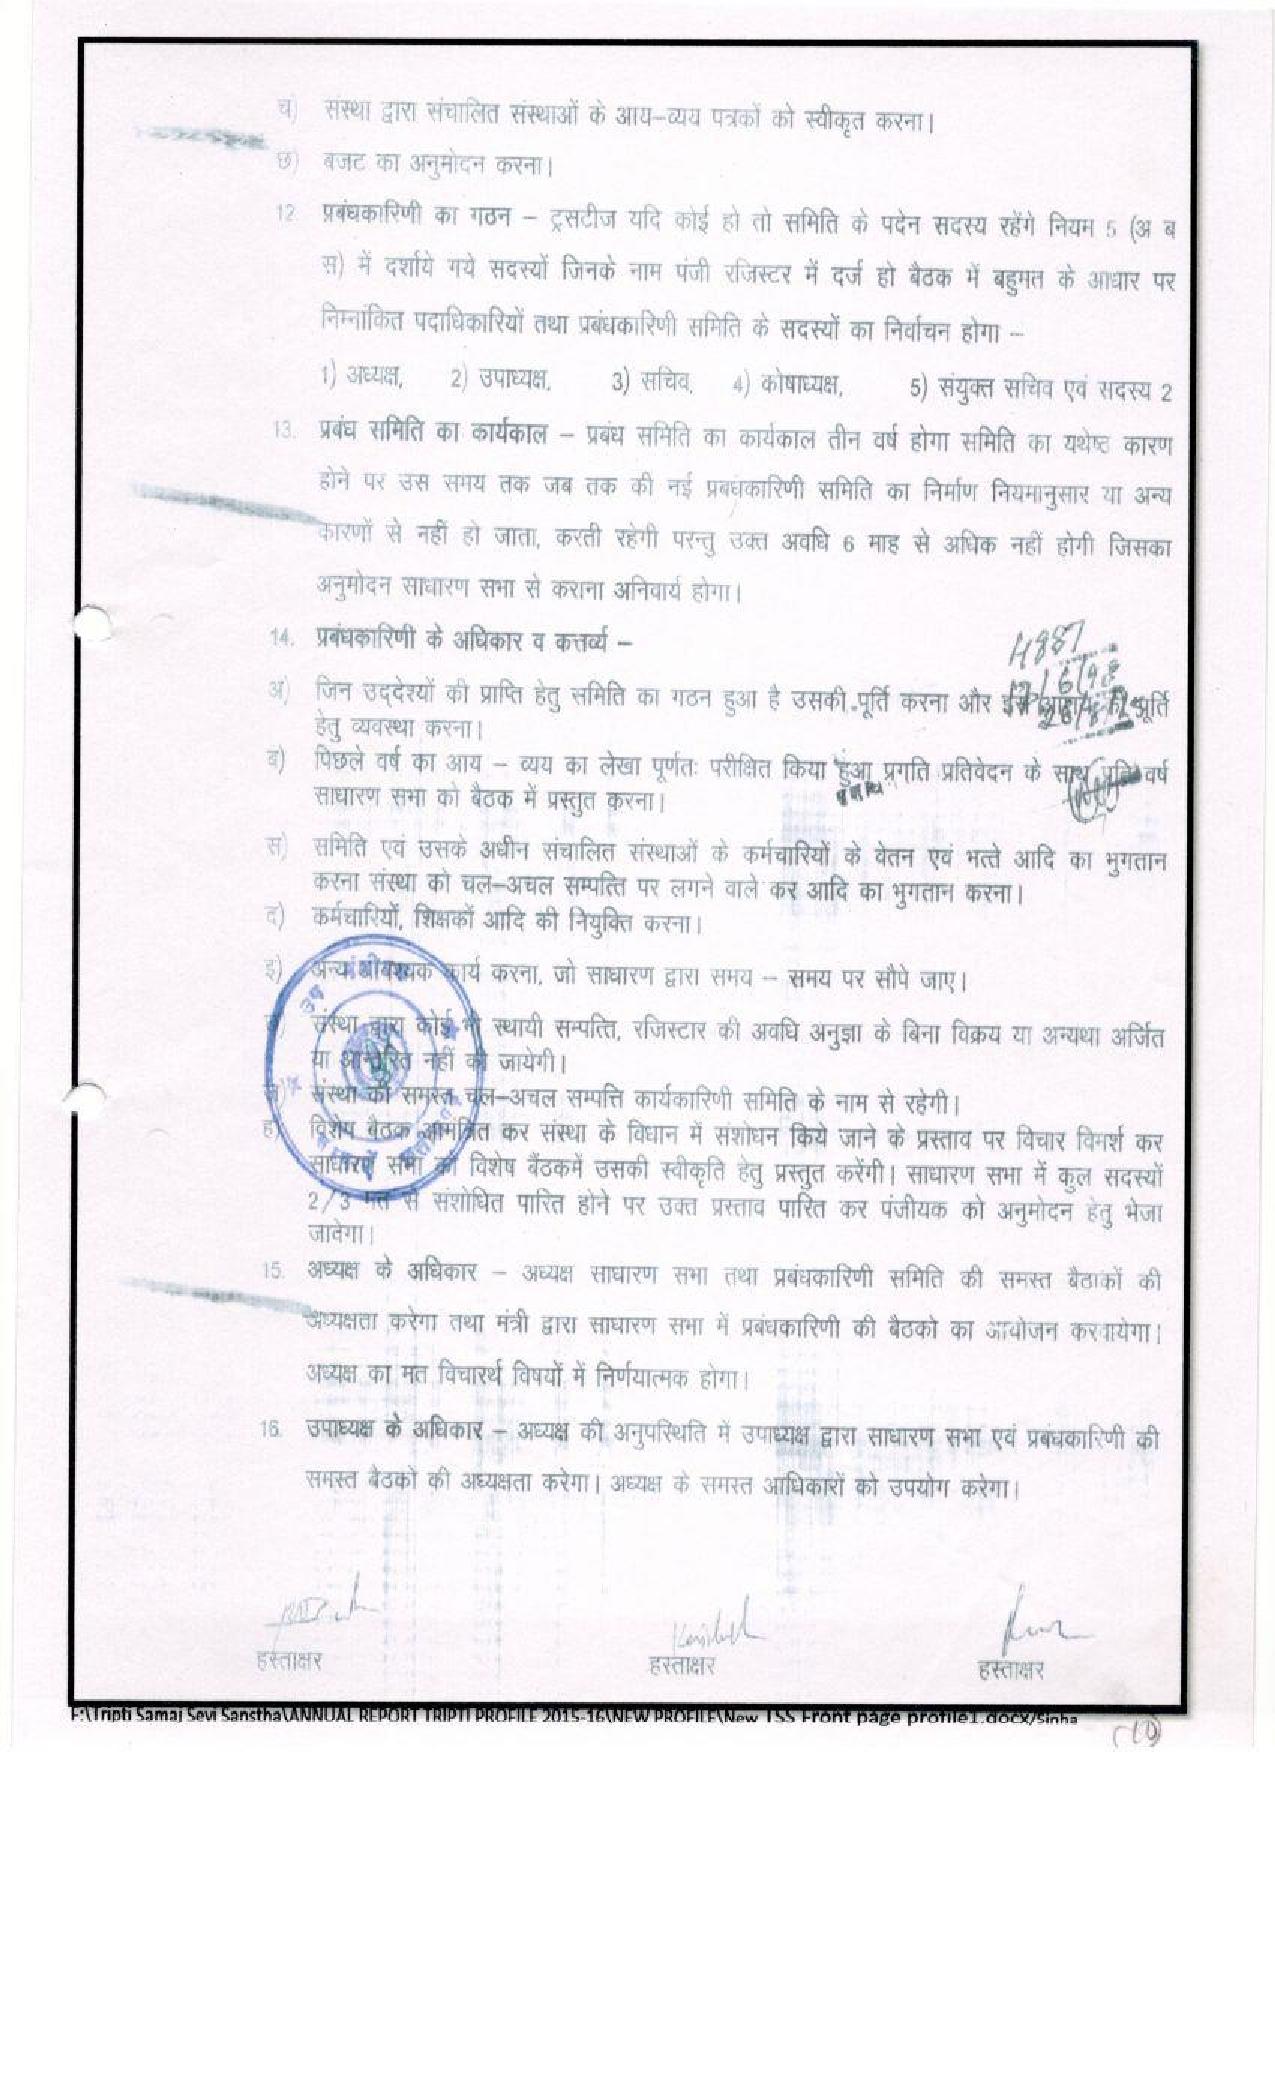 च) संस्था द्वारा संचालित संस्थाओं के आय–व्यय पत्रकों को स्वीकृत करना।
छ) बजट का अनुमोदन करना।
12. प्रबंधकारिणी का गठन – ट्रसटीज यदि कोई हो तो समिति के पदेन सदस्य रहेंगे नियम 5 (अ ब
स) में दर्शाये गये सदस्यों जिनके नाम पंजी रजिस्टर में दर्ज हो बैठक में बहुमत के आधार पर
निम्नांकित पदाधिकारियों तथा प्रबंधकारिणी समिति के सदस्यों का निर्वाचन होगा –
1) अध्यक्ष, 2) उपाध्यक्ष, 3) सचिव, 4) कोषाध्यक्ष, 5) संयुक्त सचिव एवं सदस्य 2
13. प्रबंध समिति का कार्यकाल – प्रबंध समिति का कार्यकाल तीन वर्ष होगा समिति का यथेष्ठ कारण
होने पर उस समय तक जब तक की नई प्रबधकारिणी समिति का निर्माण नियमानुसार या अन्य
कारणों से नहीं हो जाता, करती रहेगी परन्तु उक्त अवधि 6 माह से अधिक नहीं होगी जिसका
अनुमोदन साधारण सभा से कराना अनिवार्य होगा।
14. प्रबंधकारिणी के अधिकार व कर्त्तव्य –
4887
17/6/98
अ) जिन उद्देश्यों की प्राप्ति हेतु समिति का गठन हुआ है उसकी पूर्ति करना और पूर्ति
हेतु व्यवस्था करना।
ब) पिछले वर्ष का आय – व्यय का लेखा पूर्णतः परीक्षित किया हुआ प्रगति प्रतिवेदन के साथ प्रति वर्ष
साधारण सभा को बैठक में प्रस्तुत करना।
स) समिति एवं उसके अधीन संचालित संस्थाओं के कर्मचारियों के वेतन एवं भत्ते आदि का भुगतान
करना संस्था को चल–अचल सम्पत्ति पर लगने वाले कर आदि का भुगतान करना।
द) कर्मचारियों, शिक्षकों आदि की नियुक्ति करना।
इ) अन्य आवश्यक कार्य करना, जो साधारण द्वारा समय – समय पर सौपे जाए।
संस्था द्वारा कोई भी स्थायी सम्पत्ति, रजिस्टार की अवधि अनुज्ञा के बिना विक्रय या अन्यथा अर्जित
या आन्तरित नहीं की जायेगी।
संस्था की समस्त चल–अचल सम्पत्ति कार्यकारिणी समिति के नाम से रहेगी।
ह) विशेष बैठक आमंत्रित कर संस्था के विधान में संशोधन किये जाने के प्रस्ताव पर विचार विमर्श कर
साधारण सभा की विशेष बैंठकमें उसकी स्वीकृति हेतु प्रस्तुत करेंगी। साधारण सभा में कुल सदस्यों
2/3 मत से संशोधित पारित होने पर उक्त प्रस्ताव पारित कर पंजीयक को अनुमोदन हेतु भेजा
जावेगा।
15. अध्यक्ष के अधिकार – अध्यक्ष साधारण सभा तथा प्रबंधकारिणी समिति की समस्त बैठाकों की
अध्यक्षता करेगा तथा मंत्री द्वारा साधारण सभा में प्रबंधकारिणी की बैठको का आयोजन करवायेगा।
अध्यक्ष का मत विचारर्थ विषयों में निर्णयात्मक होगा।
16. उपाध्यक्ष के अधिकार – अध्यक्ष की अनुपस्थिति में उपाध्यक्ष द्वारा साधारण सभा एवं प्रबंधकारिणी की
समस्त बैठकों की अध्यक्षता करेगा। अध्यक्ष के समस्त आधिकारों को उपयोग करेगा।
हस्ताक्षर हस्ताक्षर हस्ताक्षर
F:\Tripti Samaj Sevi Sanstha\ANNUAL REPORT TRIPTI PROFILE 2015-16\NEW PROFILE\New TSS Front page profile1.docx/Sinha
(10)